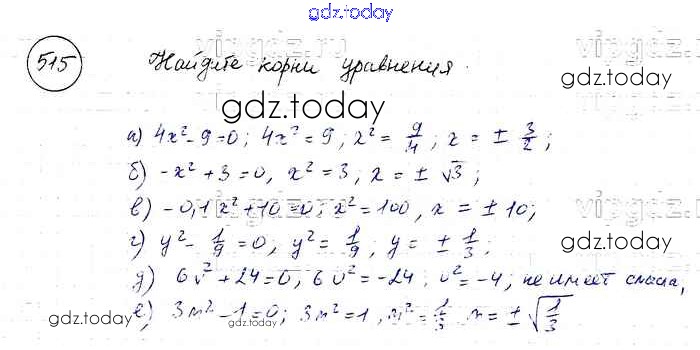 gdz.today
515 Найдите корни уравнения.
gdz.today
а) 4x² - 9 = 0; 4x² = 9, x² = 9/4, x = ± 3/2;
б) -x² + 3 = 0, x² = 3, x = ± √3;
в) -0,1x² + 10 = 0; x² = 100, x = ± 10;
г) y² - 1/9 = 0, y² = 1/9, y = ± 1/3;
gdz.today
д) 6v² + 24 = 0; 6v² = -24; v² = -4; не имеет смысла,
е) 3m² - 1 = 0; 3m² = 1, m² = 1/3 m = ± √1/3
gdz.today
gdz.today
gdz.today